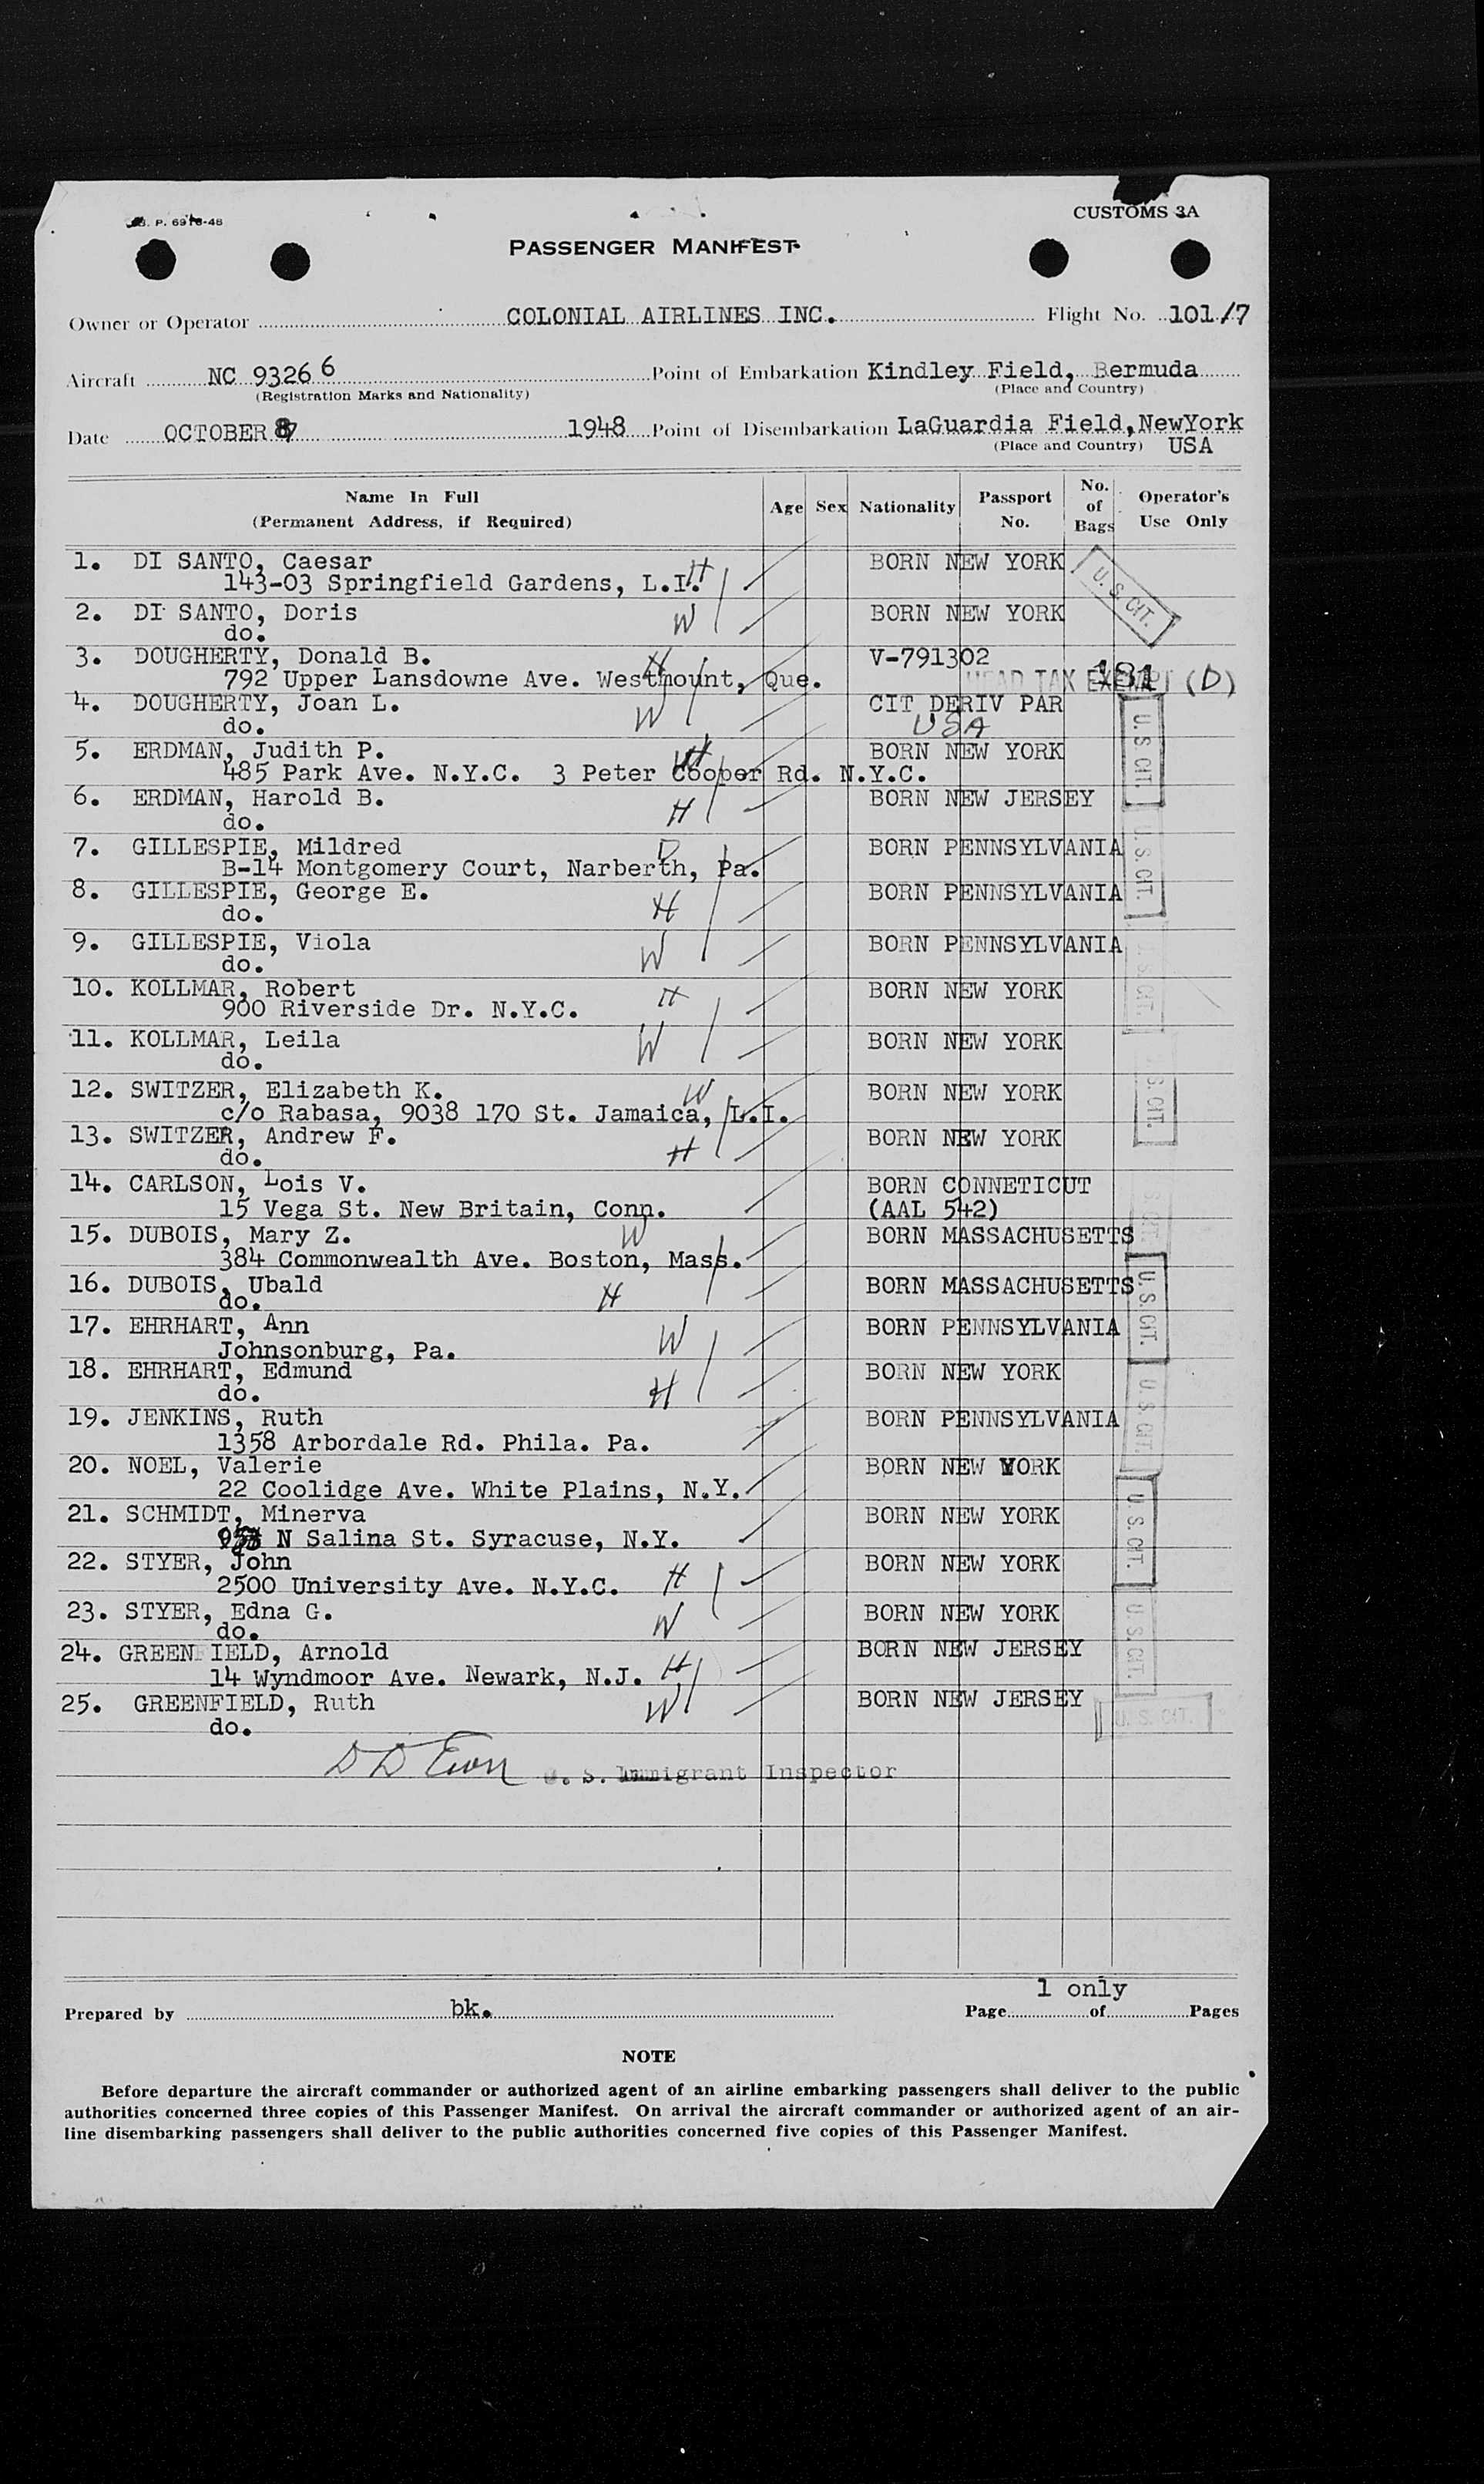 CUSTOMS 3A
PASSENGER MANIFEST
Owner or Operator COLONIAL AIRLINES INC. Flight No. 101/7
Aircraft NC 93266 Point of Embarkation Kindley Field, Bermuda
(Registration Marks and Nationality) (Place and Country)
Date OCTOBER 1948 Point of Disembarkation LaGuardia Field, NewYork
(Place and Country) USA
Name In Full Age Sex Nationality Passport No. No. of Bags Operator's Use Only
(Permanent Address, if Required)
1. DI SANTO, Caesar H BORN NEW YORK U. S. CIT.
143-03 Springfield Gardens, L.I.
2. DI SANTO, Doris W BORN NEW YORK
do.
3. DOUGHERTY, Donald B. H V-791302
792 Upper Lansdowne Ave. Westmount, Que. HEAD TAX EXEMPT 181 (D)
4. DOUGHERTY, Joan L. W CIT DERIV PAR
do. USA
5. ERDMAN, Judith P. W BORN NEW YORK U. S. CIT.
485 Park Ave. N.Y.C. 3 Peter Cooper Rd. N.Y.C.
6. ERDMAN, Harold B. H BORN NEW JERSEY
do.
7. GILLESPIE, Mildred D BORN PENNSYLVANIA U. S. CIT.
B-14 Montgomery Court, Narberth, Pa.
8. GILLESPIE, George E. H BORN PENNSYLVANIA
do.
9. GILLESPIE, Viola W BORN PENNSYLVANIA S. CIT.
do.
10. KOLLMAR, Robert H BORN NEW YORK
900 Riverside Dr. N.Y.C.
11. KOLLMAR, Leila W BORN NEW YORK
do.
12. SWITZER, Elizabeth K. W BORN NEW YORK S. CIT.
c/o Rabasa, 9038 170 St. Jamaica, L.I.
13. SWITZER, Andrew F. H BORN NEW YORK
do.
14. CARLSON, Lois V. BORN CONNETICUT S. CIT.
15 Vega St. New Britain, Conn. (AAL 542)
15. DUBOIS, Mary Z. W BORN MASSACHUSETTS
384 Commonwealth Ave. Boston, Mass.
16. DUBOIS, Ubald H BORN MASSACHUSETTS U. S. CIT.
do.
17. EHRHART, Ann W BORN PENNSYLVANIA
Johnsonburg, Pa.
18. EHRHART, Edmund H BORN NEW YORK U. S. CIT.
do.
19. JENKINS, Ruth BORN PENNSYLVANIA
1358 Arbordale Rd. Phila. Pa.
20. NOEL, Valerie BORN NEW YORK
22 Coolidge Ave. White Plains, N.Y.
21. SCHMIDT, Minerva BORN NEW YORK U. S. CIT.
N Salina St. Syracuse, N.Y.
22. STYER, John H BORN NEW YORK
2500 University Ave. N.Y.C.
23. STYER, Edna G. W BORN NEW YORK U. S. CIT.
do.
24. GREENFIELD, Arnold H BORN NEW JERSEY
14 Wyndmoor Ave. Newark, N.J.
25. GREENFIELD, Ruth W BORN NEW JERSEY U. S. CIT.
do.
U. S. Immigrant Inspector
1 only
Prepared by bk. Page of Pages
NOTE
Before departure the aircraft commander or authorized agent of an airline embarking passengers shall deliver to the public
authorities concerned three copies of this Passenger Manifest. On arrival the aircraft commander or authorized agent of an air-
line disembarking passengers shall deliver to the public authorities concerned five copies of this Passenger Manifest.